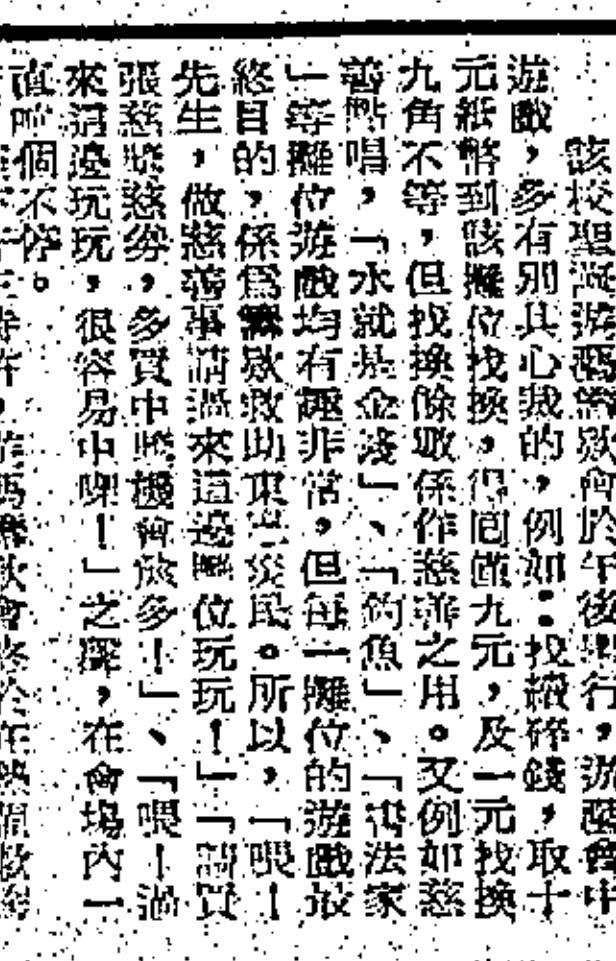 該校聖誕游藝籌欵會於午後舉行，游藝會中
遊戲，多有別具心裁的，例如：找續碎錢，取十
元紙幣到該攤位找換，得回僅九元，及一元找換
九角不等，但找換餘欵係作慈善之用。又例如慈
善點唱，「水就是金錢」、「釣魚」、「書法家
」等攤位遊戲均有趣非常，但每一攤位的遊戲最
終目的，係爲籌欵救助東江災民。所以，「喂！
先生，做慈善事情過來這邊攤位玩玩！」「請買
張慈獎慈券，多買中獎機會於多！」、「喂！過
來這邊玩玩，很容易中㗎！」之聲，在會場內一
直喧個不停。